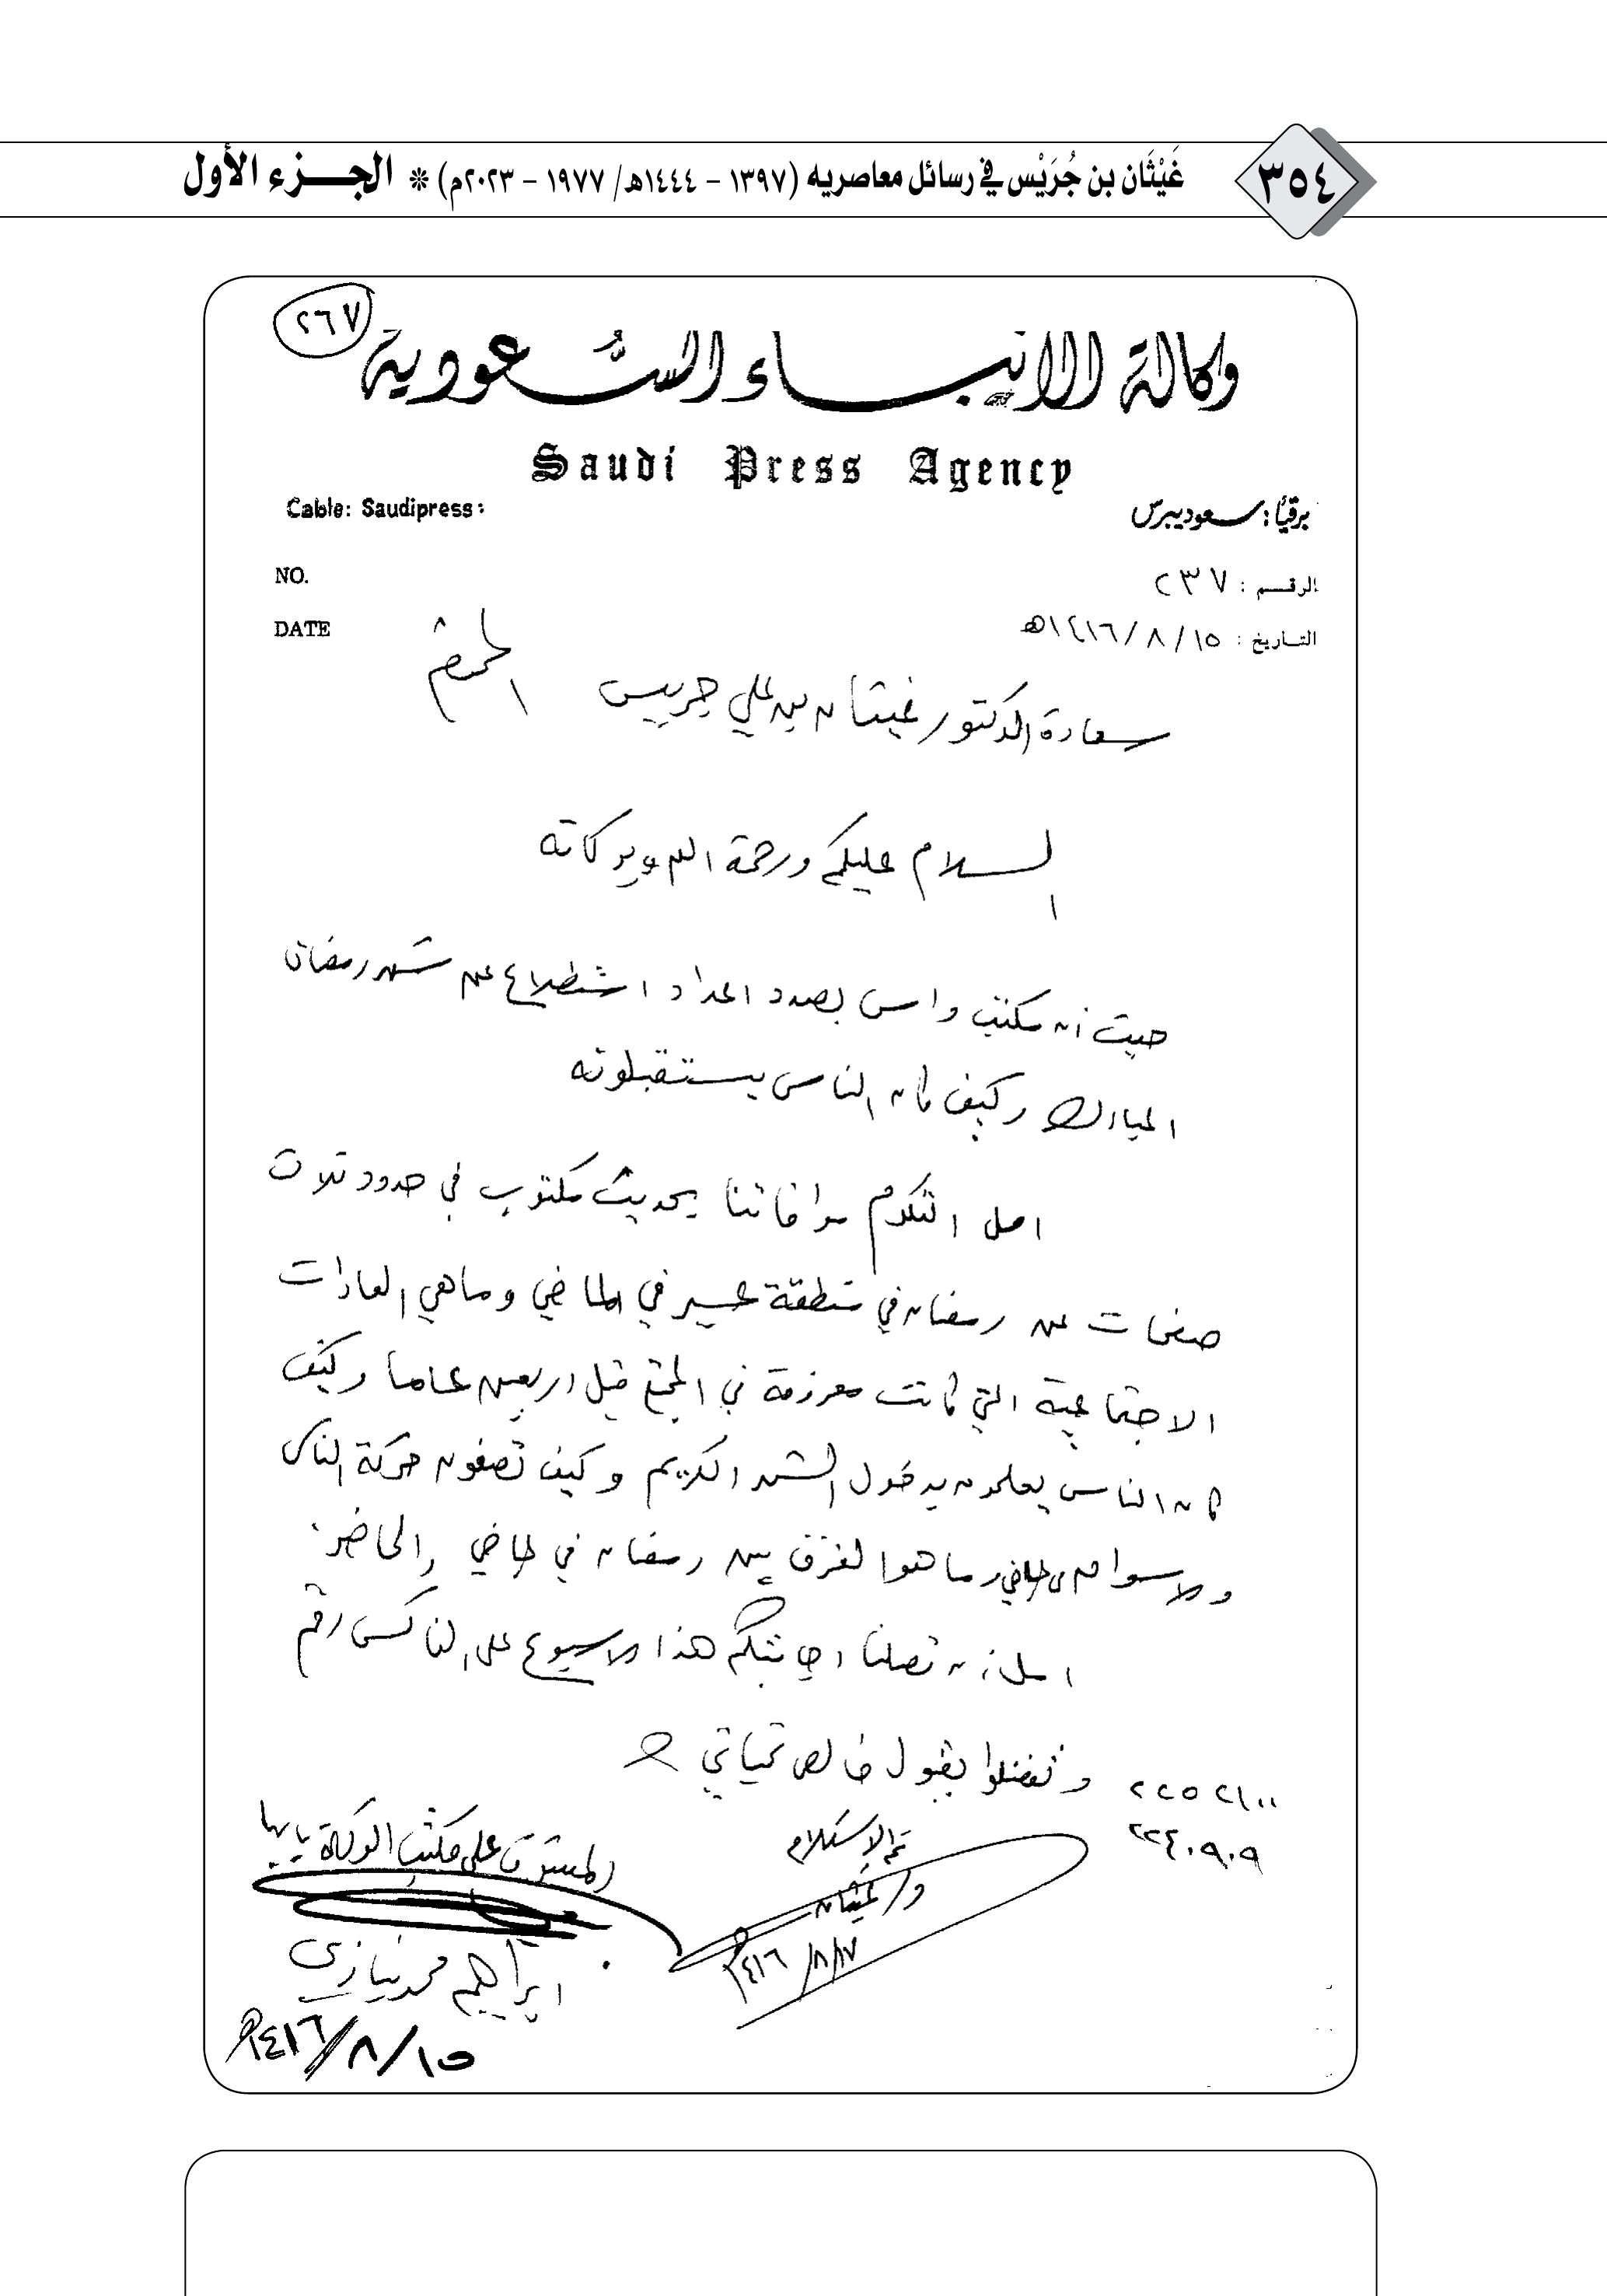 ٣٥٤
غَيْثَان بن جُرَيْس في رسائل معاصريه (١٣٩٧ - ١٤٤٤هـ/ ١٩٧٧ - ٢٠٢٣م) * الجزء الأول
٢٦٧
وكالة الأنباء السعودية
Saudi Press Agency
برقيًا: سعوديبرس Cable: Saudipress:
الرقم: ٢٣٧ NO.
التاريخ: ١٥/ ٨ /١٤١٦هـ DATE
سعادة الدكتور غيثان بن علي جريس المحترم
السلام عليكم ورحمة الله وبركاته
حيث أن مكتب واس بصدد اعداد استطلاع عن شهر رمضان
المبارك وكيف كان الناس يستقبلونه
امل التكرم موافاتنا بحديث مكتوب في حدود ثلاث
صفحات عن رمضان في منطقة عسير في الماضي وماهي العادات
الاجتماعية التي كانت معروفة في المجتمع قبل اربعين عاما وكيف
كان الناس يعلمون بدخول الشهر الكريم وكيف تصفون حركة الناس
والاسواق في الماضي وما هو الفرق بين رمضان في الماضي والحاضر.
امل أن تصلنا اجابتكم هذا الاسبوع على الفاكس رقم
٢٢٥٢١٠٠ وتفضلوا بقبول خالص تحياتي
٢٢٤٠٩٠٩
تم الاستلام
د/ غيثان
١٧/٨/١٤١٦هـ
المشرف على مكتب الوكالة بأبها
ابراهيم محمد نيازي
١٥/٨/١٤١٦هـ